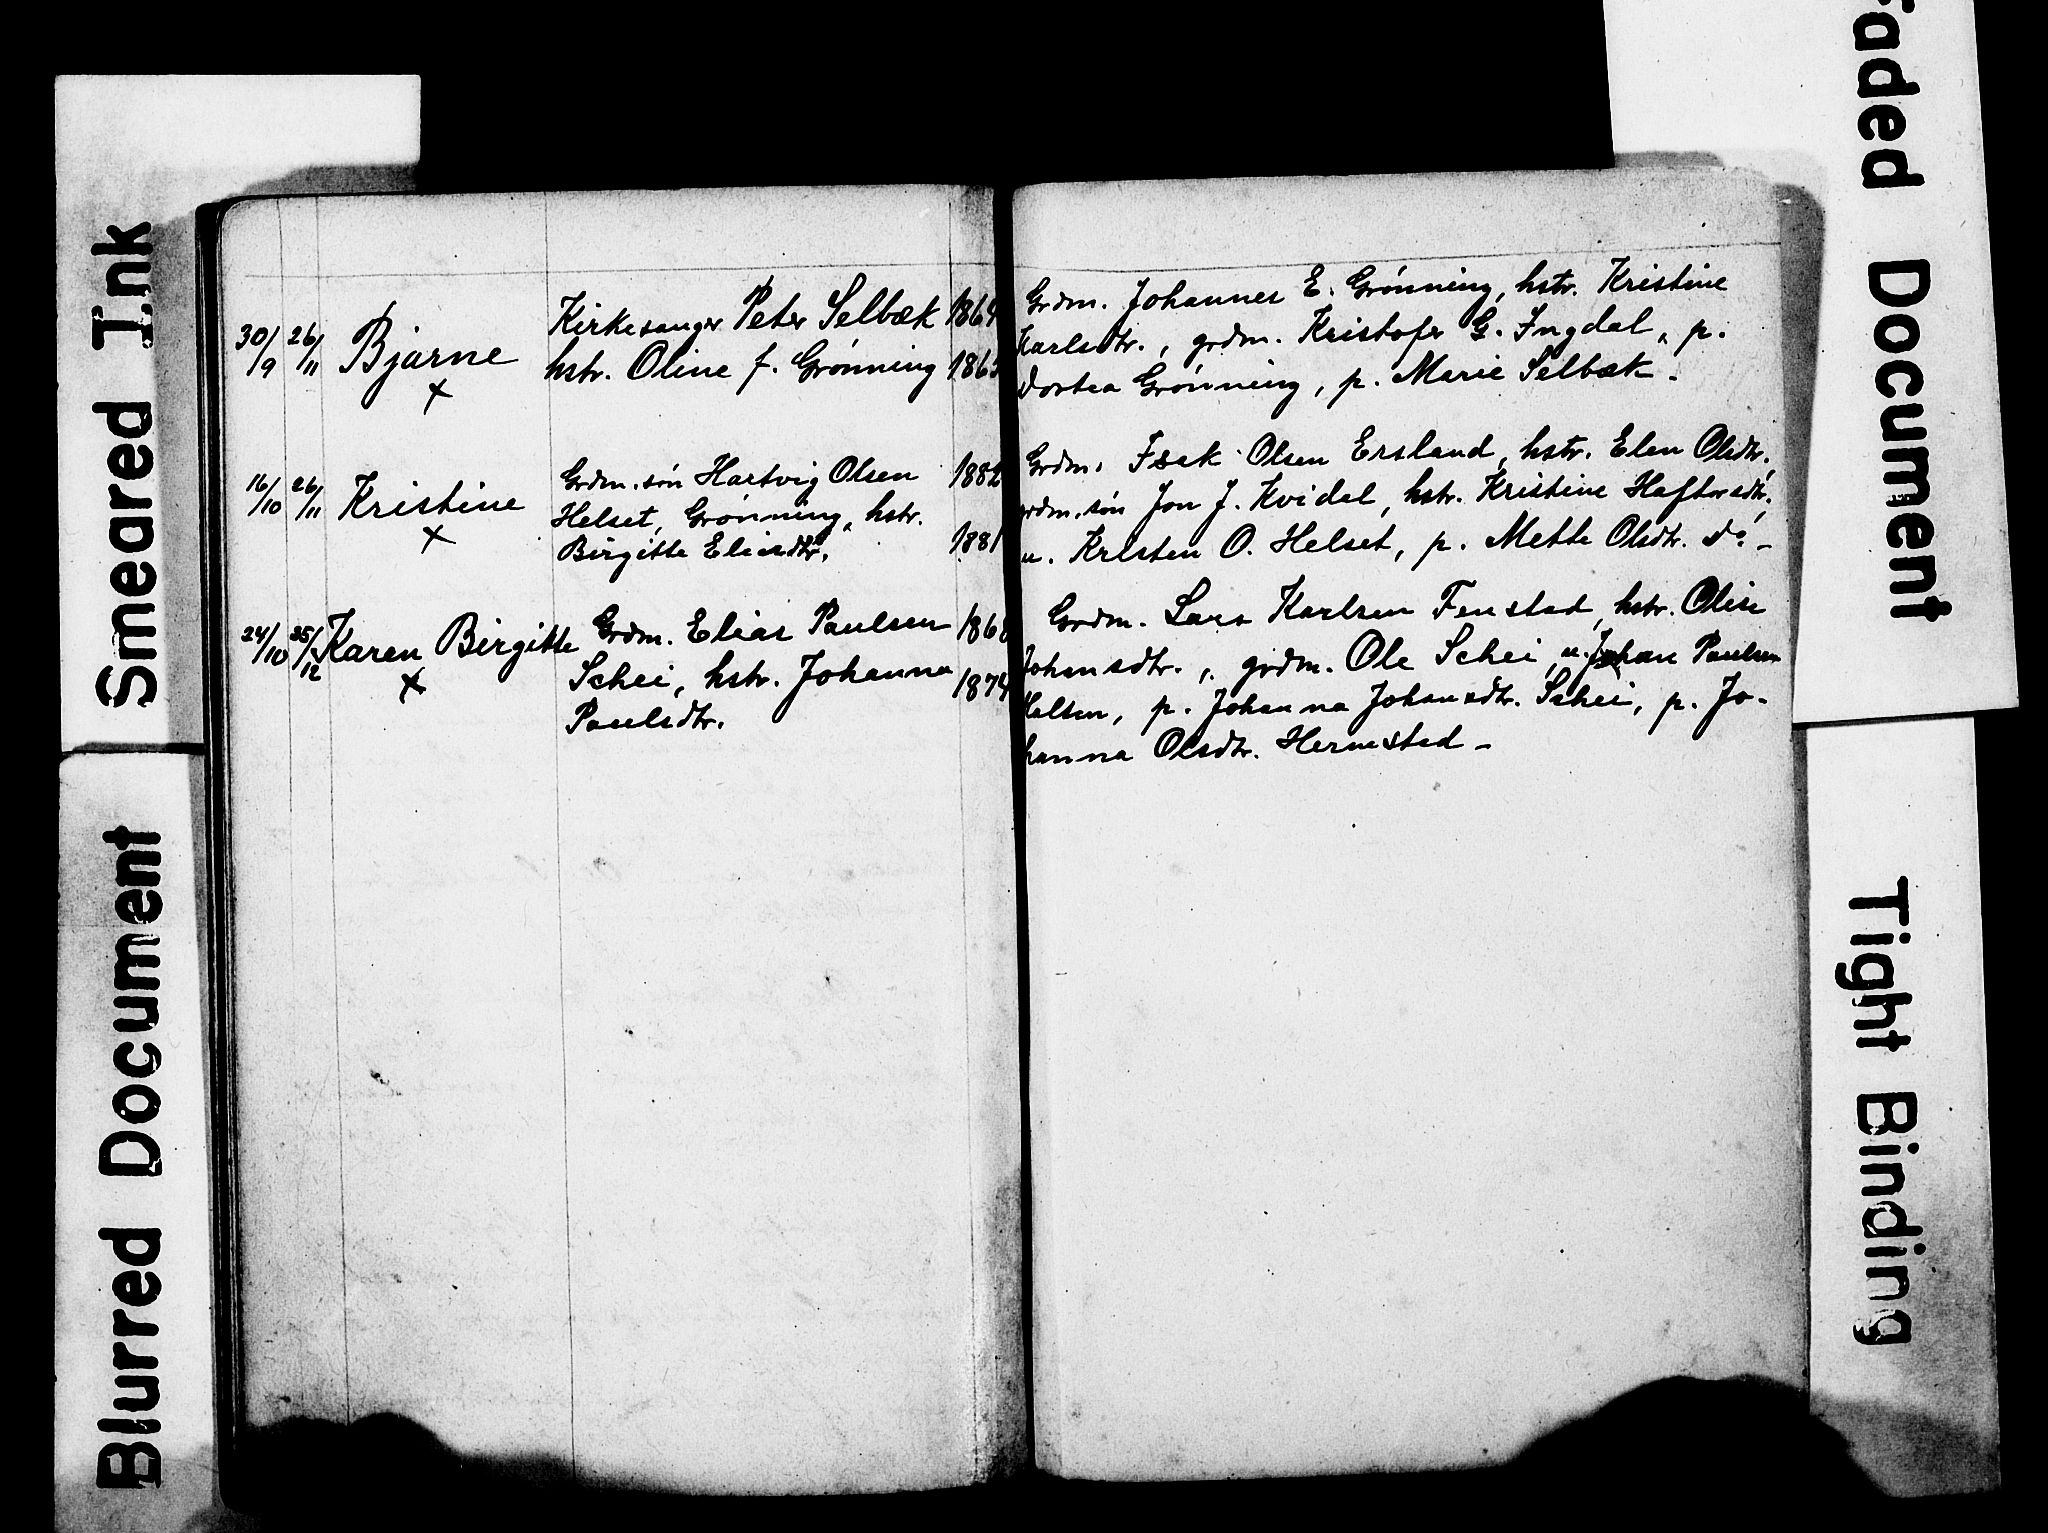 Smeared Ink
Blurred Document
Faded Document
Tight Binding
30/9 26/11 Bjarne Kirkesanger Peter Selbæk 1864
hstr. Oline f. Grønning
×
16/10 26/11 Kristine Grdm. søn Hartvig Olsen 1882
Helset, Grønning, hstr.
× Birgitte Eliasdtr. 1881
24/10 25/12 Karen Birgitte Grdm. Elias Paulsen
× Schei, hstr. Johanna 1874
Paulsdtr.
Grdm. Johannes E. Grønning, hstr. Kristine
Karlsdtr., grdm. Kristofer G. Ingdal, p.
Dortea Grønning, p. Marie Selbæk.
Grdm. Isak Olsen Ersland, hstr. Elen Olsdtr.,
grdm. søn Jon J. Kvidal, hstr. Kristine Haftorsdtr.,
u. Kristen O. Helset, p. Mette Olsdtr. do -
Grdm. Lars Karlsen Fenstad, hstr. Olise
Johansdtr., grdm. Ole Schei, u. Johan Paulsen
Halsen, p. Johanna Johansdtr. Schei, p. Jo-
hanna Olsdtr. Hernestad -